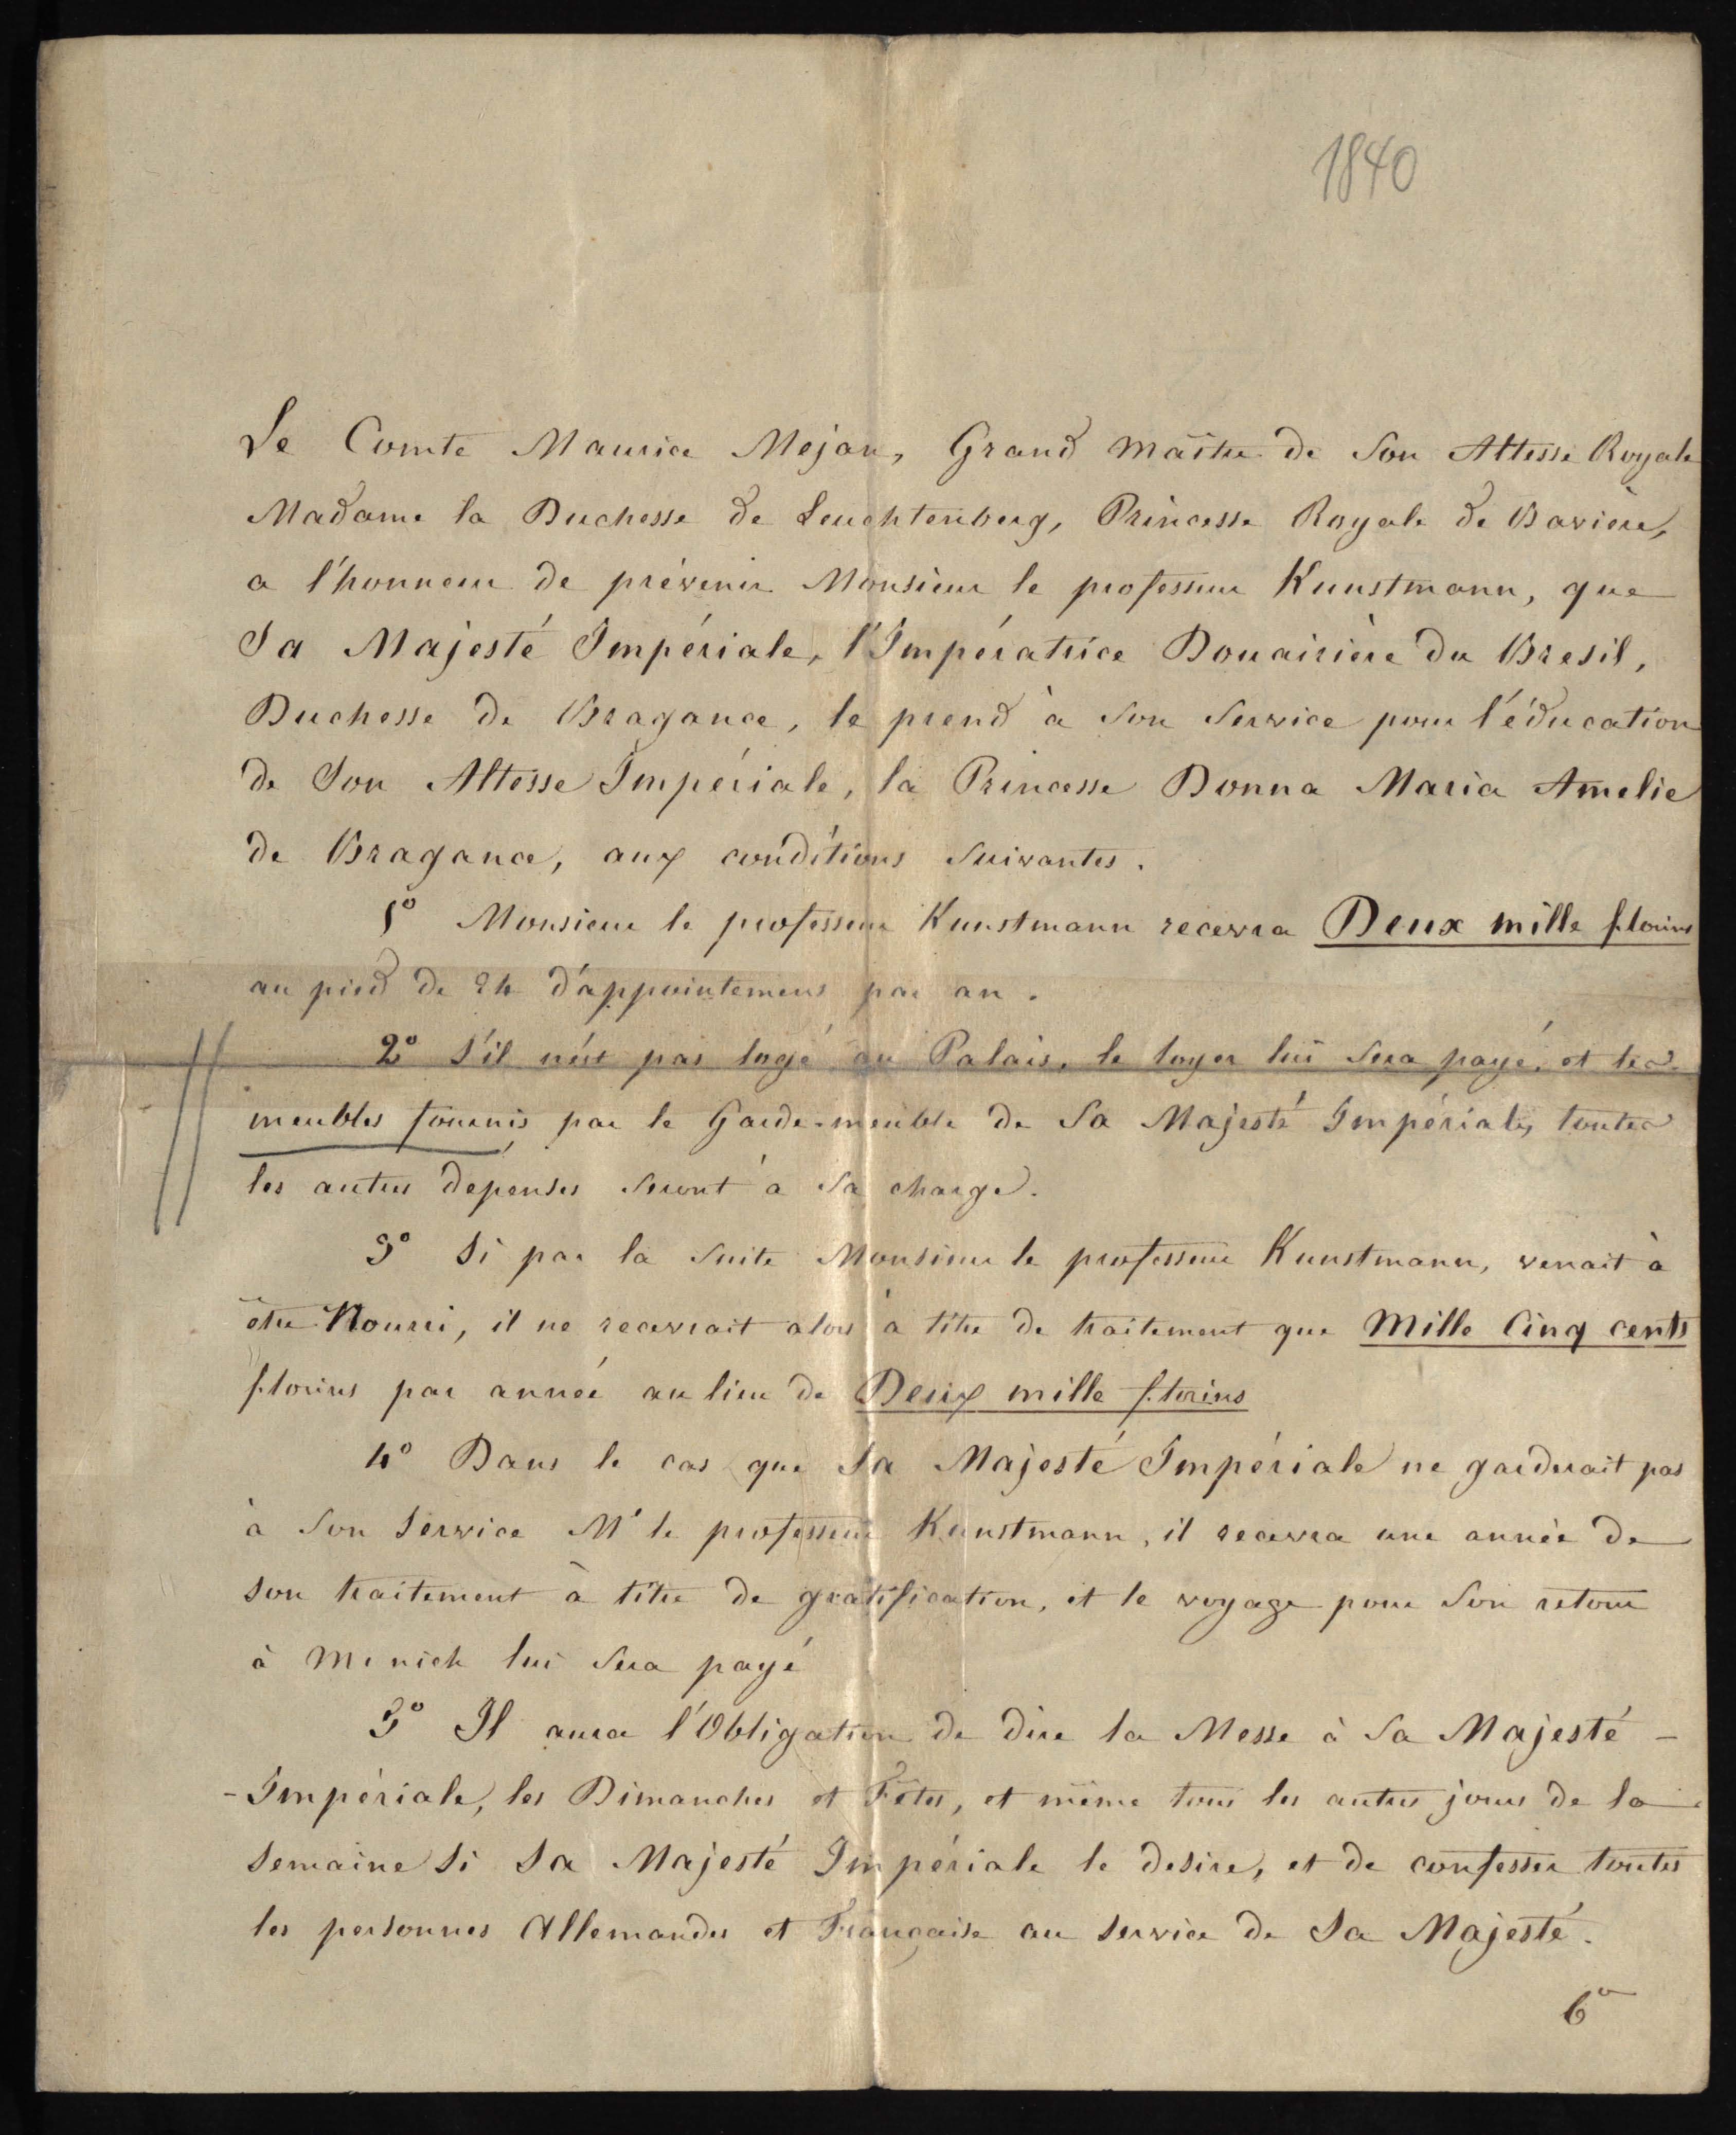 1840
Le Comte Maurice Mejan, Grand Maître de Son Altesse Royale
Madame la Duchesse de Leuchtenberg, Princesse Royale de Bavière,
a l'honneur de prévenir Monsieur le professeur Kunstmann, que
Sa Majesté Impériale, l'Impératrice Douairière du Bresil,
Duchesse de Bragance, le prend à Son Service pour l'éducation
de Son Altesse Impériale, la Princesse Donna Maria Amelie
de Bragance, aux conditions Suivantes.
1° Monsieur le professeur Kunstmann recevra Deux mille florins
au pied de 24 d'appointemens par an.
2° S'il n'est pas logé au Palais, le loyer lui Sera payé, et les
meubles fournis par le Garde-meuble de Sa Majesté Impériale, toutes
les autres dépenses Seront à Sa charge.
3° Si par la Suite Monsieur le professeur Kunstmann, venait à
être Nourri, il ne recevrait alors à titre de traitement que Mille Cinq cents
florins par année au lieu de Deux mille florins
4° Dans le cas que Sa Majesté Impériale ne garderait pas
à Son Service Mr le professeur Kunstmann, il recevra une année de
son traitement à titre de gratification, et le voyage pour Son retour
à Munich lui Sera payé
5° Il aura l'Obligation de dire la Messe à Sa Majesté -
- Impériale, les Dimanches et Fêtes, et même tous les autres jours de la
Semaine Si Sa Majesté Impériale le desire, et de confesser toutes
les personnes Allemandes et Française au Service de Sa Majesté.
6°